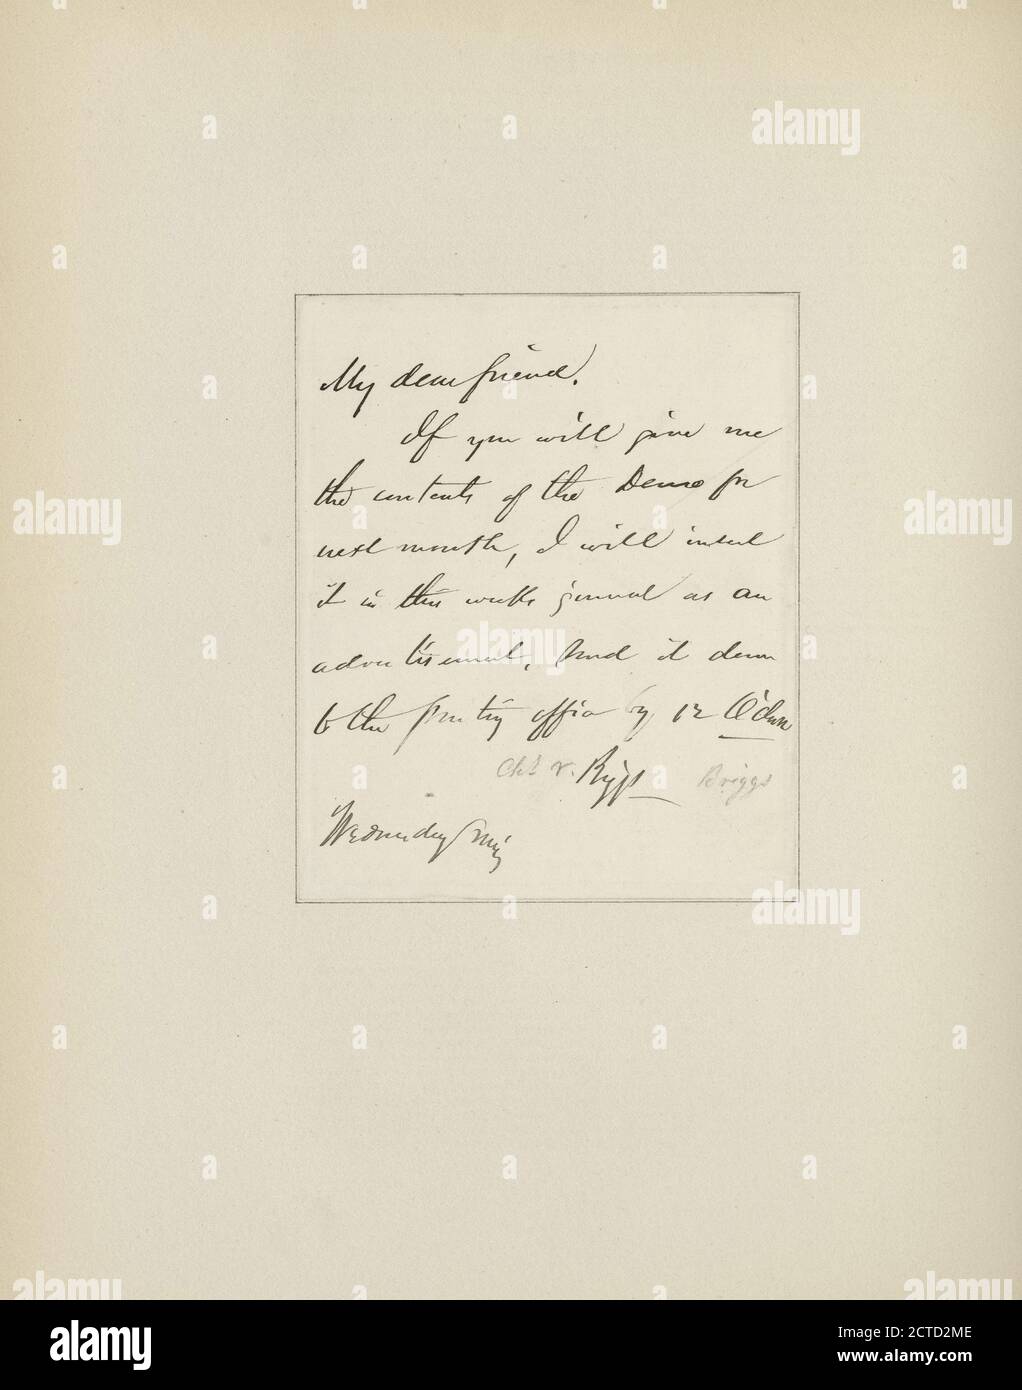 My dear friend.
If you will give me
the contents of the Demo for
next month, I will insert
it in this weeks journal as an
advertisement, Send it down
to the printing office by 12 O'clock
Chs F. Briggs Briggs
Wednesday Mng
alamy
Image ID: 2CTD2ME
www.alamy.com